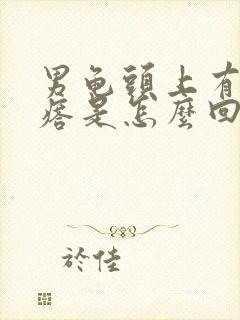 男龟頭上有
痞是怎麼回
於佳